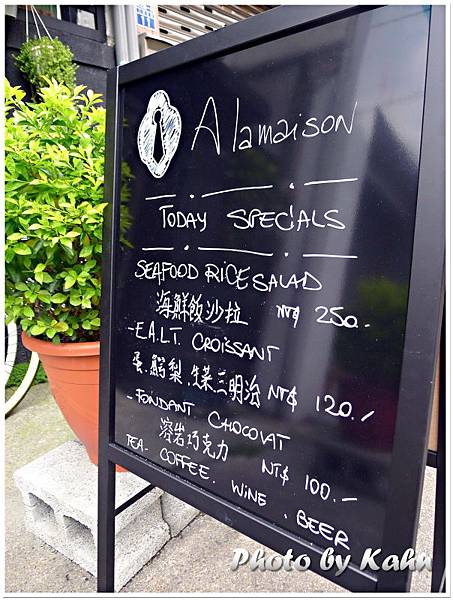 A la maison
TODAY SPECIALS
SEAFOOD RICE SALAD
海鮮飯沙拉 NT$ 250.-
- E.A.L.T. CROISSANT
蛋.鱷梨.生菜三明治 NT$ 120./
- FONDANT CHOCOLAT
溶岩巧克力 NT$ 100.-
TEA. COFFEE. WINE. BEER
Photo by Kahn